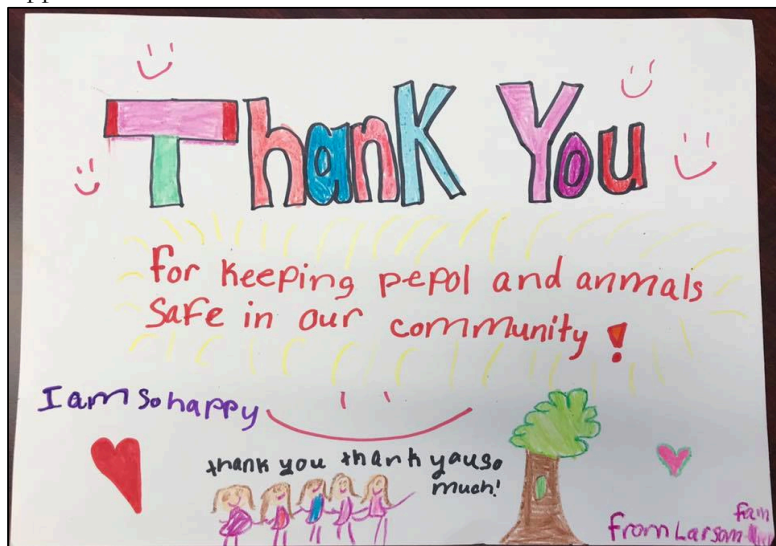 Thank You
for keeping pepol and anmals
safe in our community!
I am so happy
thank you thank yauso
much!
fam
from Larsom